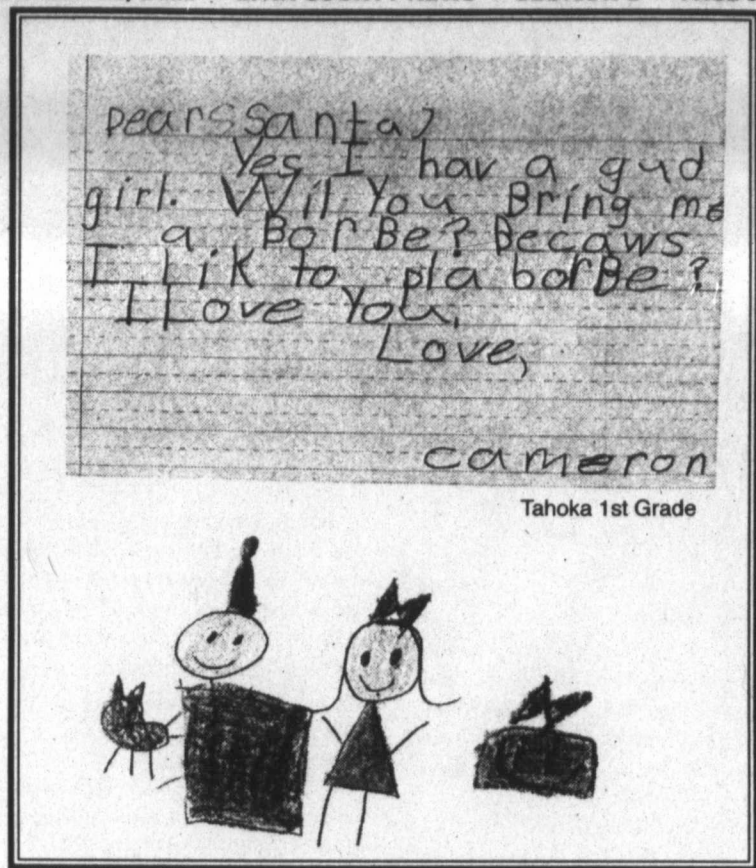 Dearssanta,
Yes I hav a gud
girl. Wil You Bring me
a BorBe? Becaws
I Lik to pla borBe?
I Love You,
Love,
cameron
Tahoka 1st Grade